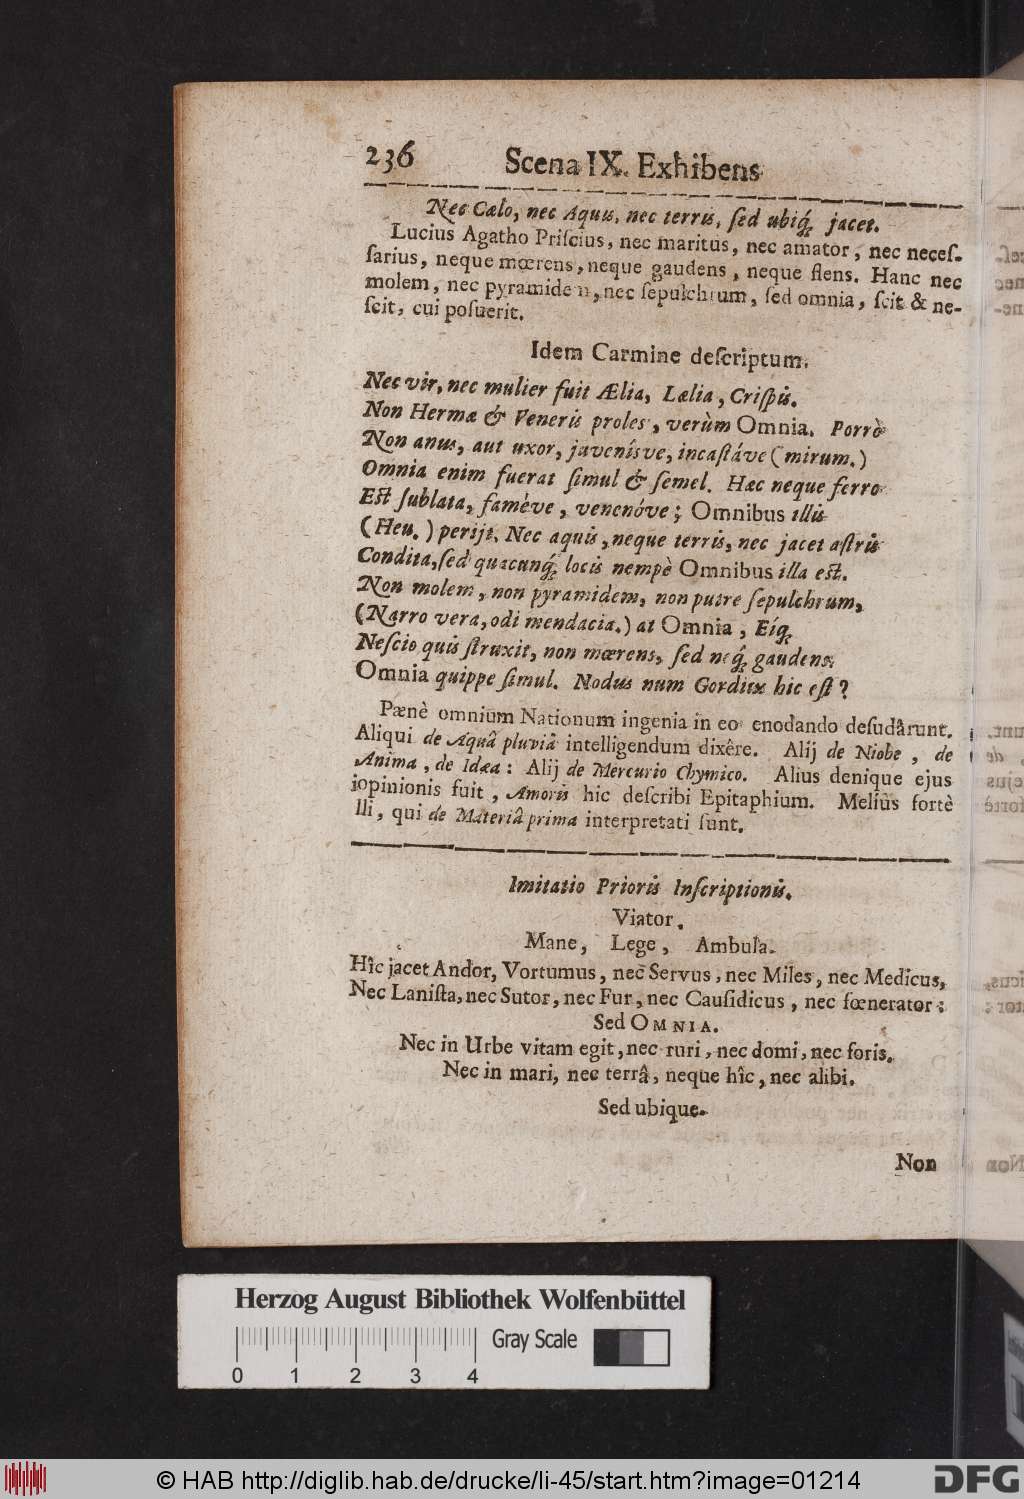 236 Scena IX. Exhibens
Nec Cælo, nec Aquis, nec terris, ſed ubiq́; jacet.
Lucius Agatho Priſcius, nec maritus, nec amator, nec neceſ-
ſarius, neque mœrens, neque gaudens, neque flens. Hanc nec
molem, nec pyramiden, nec ſepulchrum, ſed omnia, ſcit & ne-
ſcit, cui poſuerit.
Idem Carmine deſcriptum.
Nec vir, nec mulier fuit Ælia, Lælia, Criſpis.
Non Hermæ & Veneris proles, verùm Omnia. Porrò
Non anus, aut uxor, juvenísve, incaſtáve (mirum.)
Omnia enim fuerat ſimul & ſemel. Hæc neque ferro
Eſt ſublata, famève, venenóve; Omnibus illis
(Heu.) perijt. Nec aquis, neque terris, nec jacet aſtris
Condita, ſed quacunq́; locis nempè Omnibus illa eſt.
Non molem, non pyramidem, non putre ſepulchrum,
(Narro vera, odi mendacia.) at Omnia, Eíq;
Neſcio quis ſtruxit, non mœrens, ſed neq́; gaudens.
Omnia quippe ſimul. Nodus num Gordiux hic eſt?
Pænè omnium Nationum ingenia in eo enodando deſudârunt.
Aliqui de Aquâ pluviâ intelligendum dixêre. Alij de Niobe, de
Anima, de Idæa: Alij de Mercurio Chymico. Alius denique ejus
iopinionis fuit, Amoris hic deſcribi Epitaphium. Meliùs fortè
lli, qui de Materiâ prima interpretati ſunt.
Imitatio Prioris Inſcriptionis.
Viator.
Mane, Lege, Ambula.
Hîc jacet Andor, Vortumus, nec Servus, nec Miles, nec Medicus,
Nec Laniſta, nec Sutor, nec Fur, nec Cauſidicus, nec fœnerator:
Sed OMNIA.
Nec in Urbe vitam egit, nec ruri, nec domi, nec foris.
Nec in mari, nec terrâ, neque hîc, nec alibi.
Sed ubique.
Non
Herzog August Bibliothek Wolfenbüttel
Gray Scale
0 1 2 3 4
© HAB http://diglib.hab.de/drucke/li-45/start.htm?image=01214
DFG